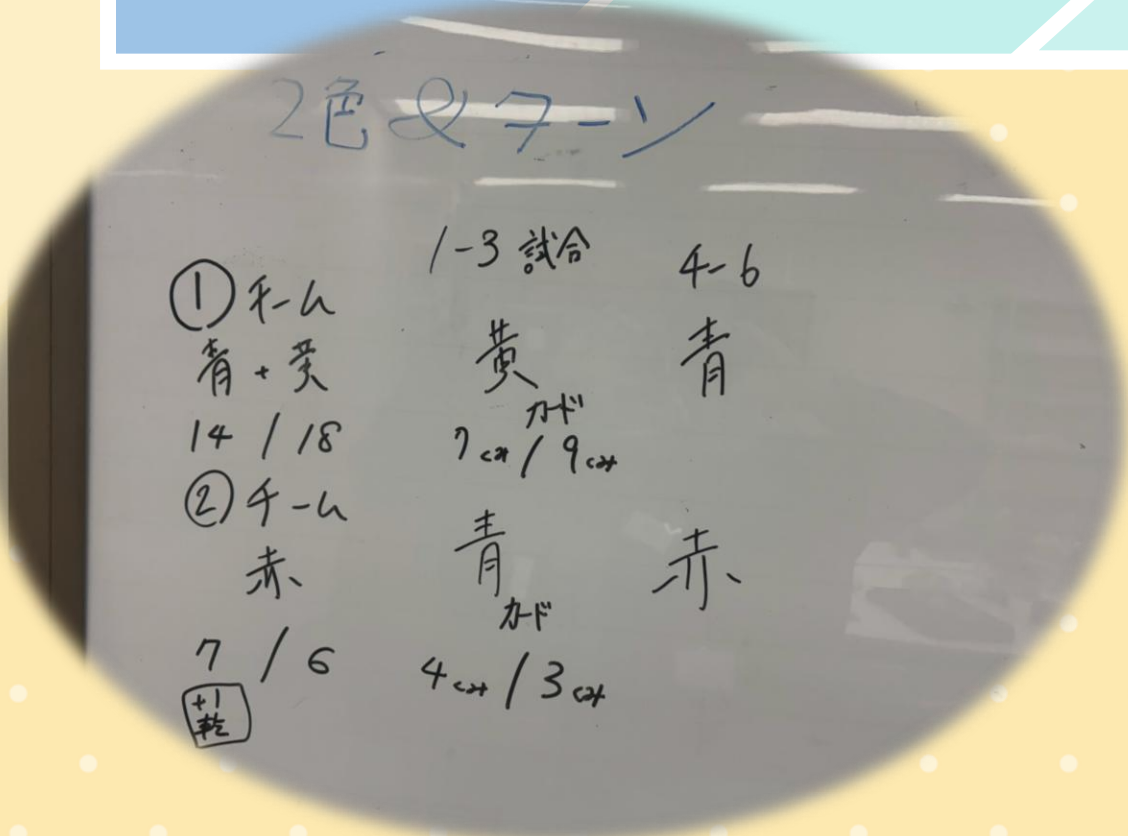 2色&ターン
1-3 試合 4-6
① チーム
青+黄 黄 青
カード
14 / 18 7くみ / 9くみ
② チーム
赤 青 赤
カード
7 / 6 4くみ / 3くみ
+1
乾